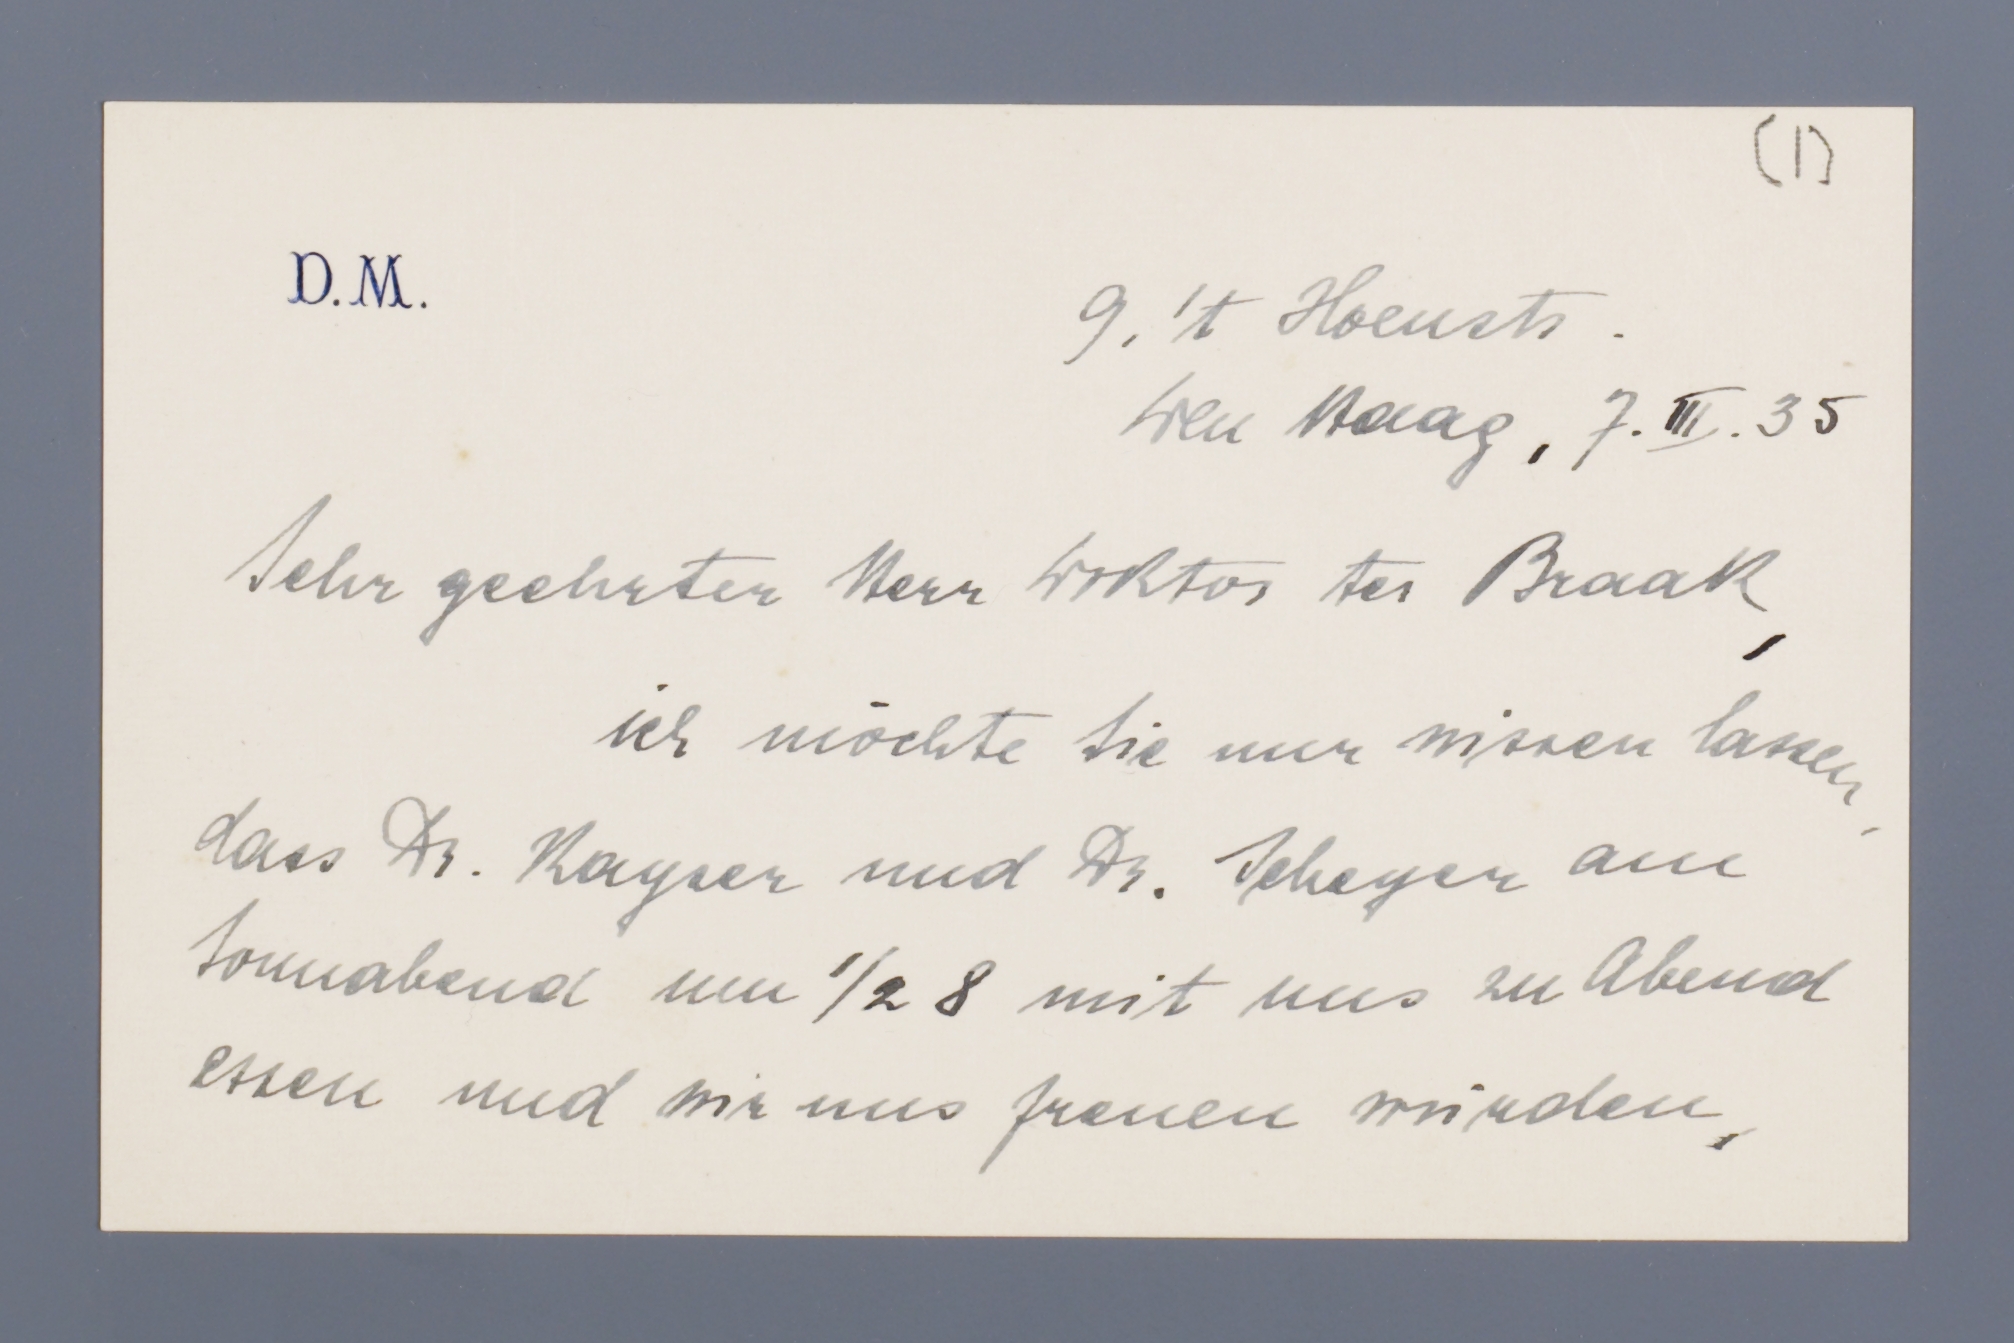 (1)
D.M.
9, 't Hoenstr.
Den Haag, 7.III.35
Sehr geehrter Herr Doktor ter Braak,
ich möchte Sie nur wissen lassen,
dass Dr. Kayser und Dr. Scheyer am
Sonnabend um 1/2 8 mit uns zu Abend
essen und wir uns freuen würden,